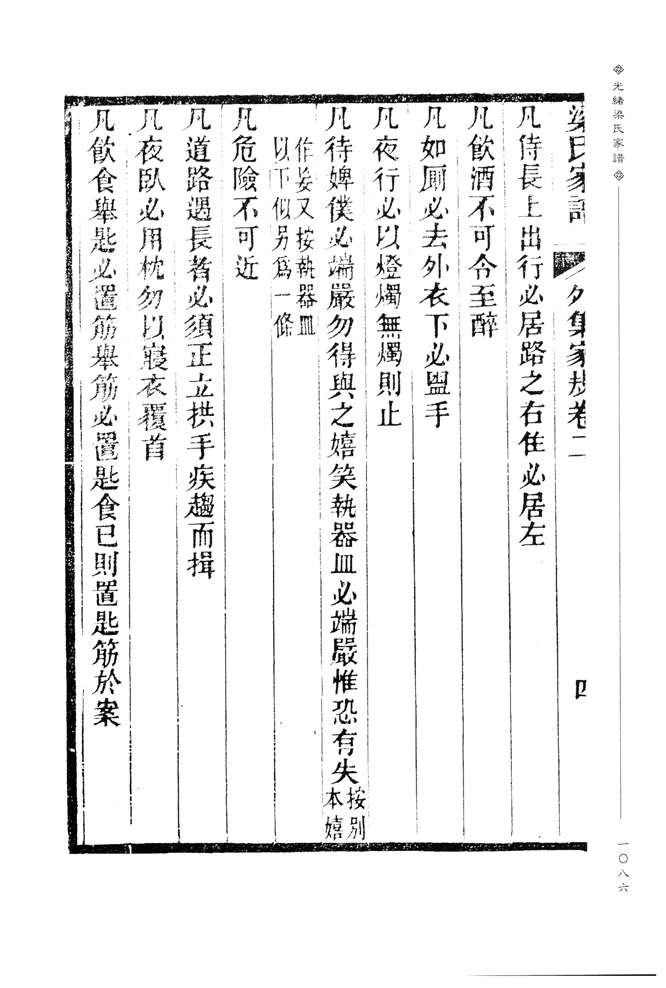 光緒梁氏家譜
一〇八六
梁氏家譜 外集家規卷二 四
凡侍長上出行必居路之右住必居左
凡飲酒不可令至醉
凡如厠必去外衣下必盥手
凡夜行必以燈燭無燭則止
凡待婢僕必端嚴勿得與之嬉笑執器皿必端嚴惟恐有失按別本嬉
作妄又按執器皿
以下似另爲一條
凡危險不可近
凡道路遇長者必須正立拱手疾趨而揖
凡夜臥必用枕勿以寢衣覆首
凡飲食舉匙必置筯舉筯必置匙食已則置匙筯於案